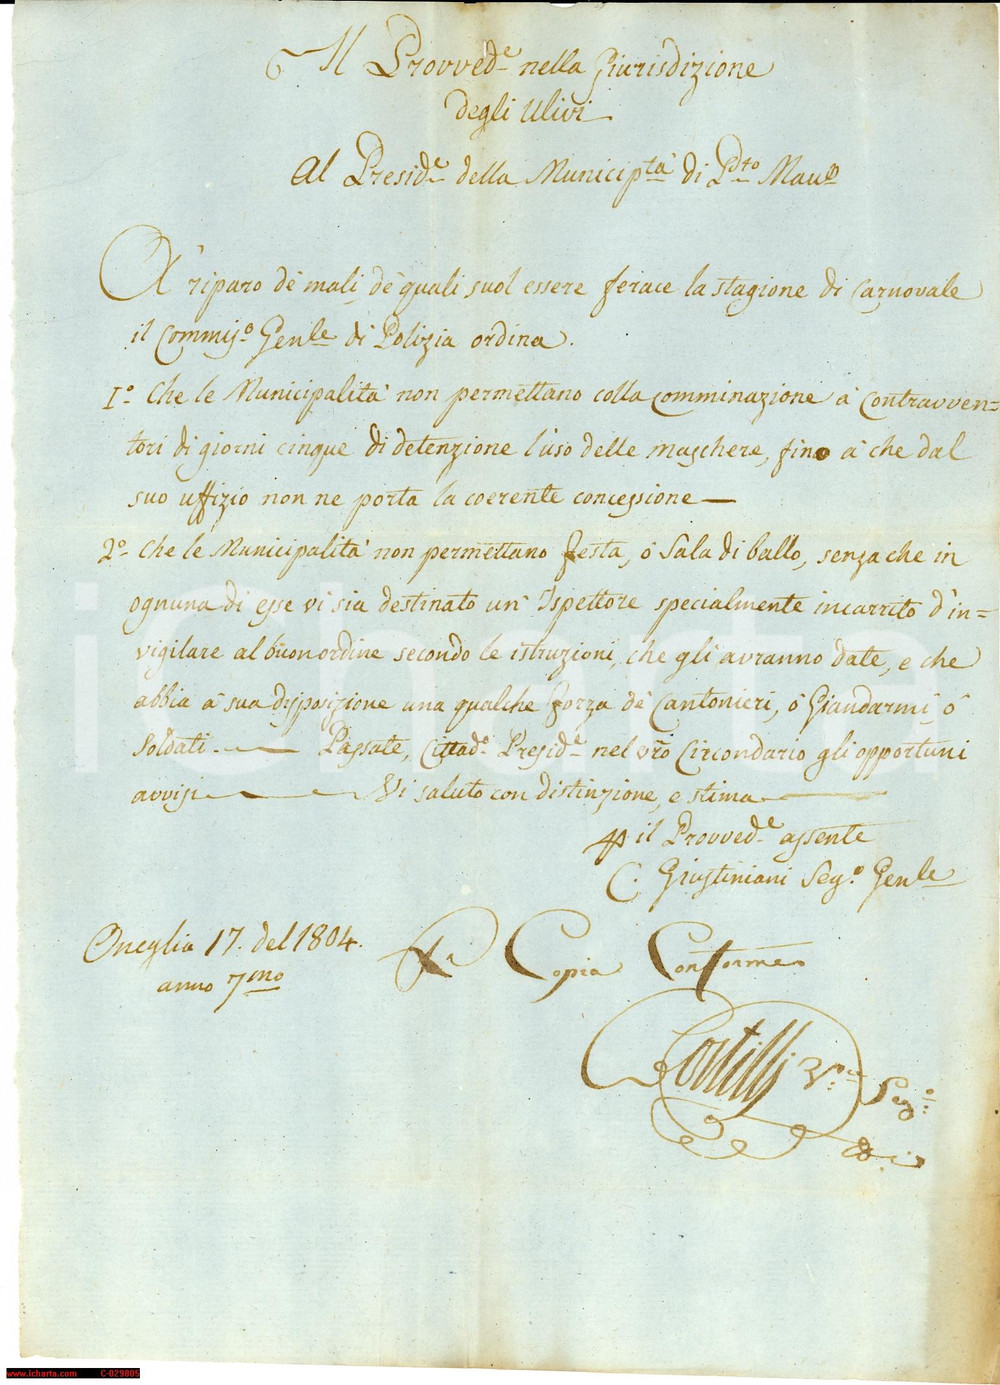 Il Provved.e nella Giurisdizione
degli Ulivi
Al Presid.e della Municip.tà di P.to Mau.o
A' riparo de' mali, de' quali suol essere ferace la stagione di Carnovale
il Commiss.o Gen.le di Polizia ordina.
1.o Che le Municipalità non permettano colla comminazione a' contravven=
tori di giorni cinque di detenzione l'uso delle maschere, fino a' che dal
suo uffizio non ne porta la coerente concessione —
2.o Che le Municipalità non permettano festa, ò Sala di ballo, senza che in
ognuna di esse vi sia destinato un' Ispettore specialmente incarrito d'in=
vigilare al buon ordine secondo le istruzioni, che gli avranno date, e che
abbia a' sua disposizione una qualche forza de' Cantonieri, ò Giandarmi, ò
Soldati. — Passate, Cittad.o Presid.e nel vro Circondario gli opportuni
avvisi — Vi saluto con distinzione, e stima —
p il Provved.e assente
C. Giustiniani Seg.o Gen.le
Oneglia 17. del 1804.
anno 7.mo
Copia Conforme
Seg.o
iCharta
www.icharta.com C-029805